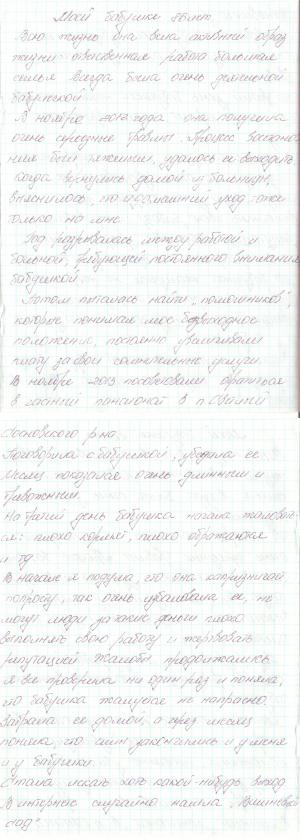 Моей бабушке 88 лет.
Всю жизнь она вела активный образ
жизни ответственная работа большая
семья всегда была очень деятельной
бабушкой
В ноябре 2012 года она получила
очень серьезные травмы. Процесс восстанов
ния был тяжелым, удалось ее выходить
когда вернулись домой из больницы,
выяснилось, что дальнейший уход лежит
только на мне.
Год разрывалась между работой и
больной, требующей постоянного внимания
бабушкой.
Потом пыталась найти "помощников",
которые понимая мое безвыходное
положение, постоянно увеличивали
плату за свои сомнительные услуги.
В ноябре 2013 посоветовали обратиться
в частный пансионат в п. Светлый
Сосновского р-на
Поговорила с бабушкой, убедила ее.
Месяц показался очень длинным и
тревожным.
На третий день бабушка начала жаловать-
ся: плохо кормят, плохо обращаются
и тд
В начале я подумала, что она капризничает
попросту, так очень избаловала ее, не
могут люди за такие деньги плохо
выполнять свою работу и жертвовать
репутацией Жалобы продолжались
я все проверила не один раз и поняла,
что бабушка жалуется не напрасно.
Забрала ее домой, а через месяц
поняла, что силы закончились и у меня
и у бабушки.
Стала искать хоть какой-нибудь выход
В интернете случайно нашла "Вишневый
сад"